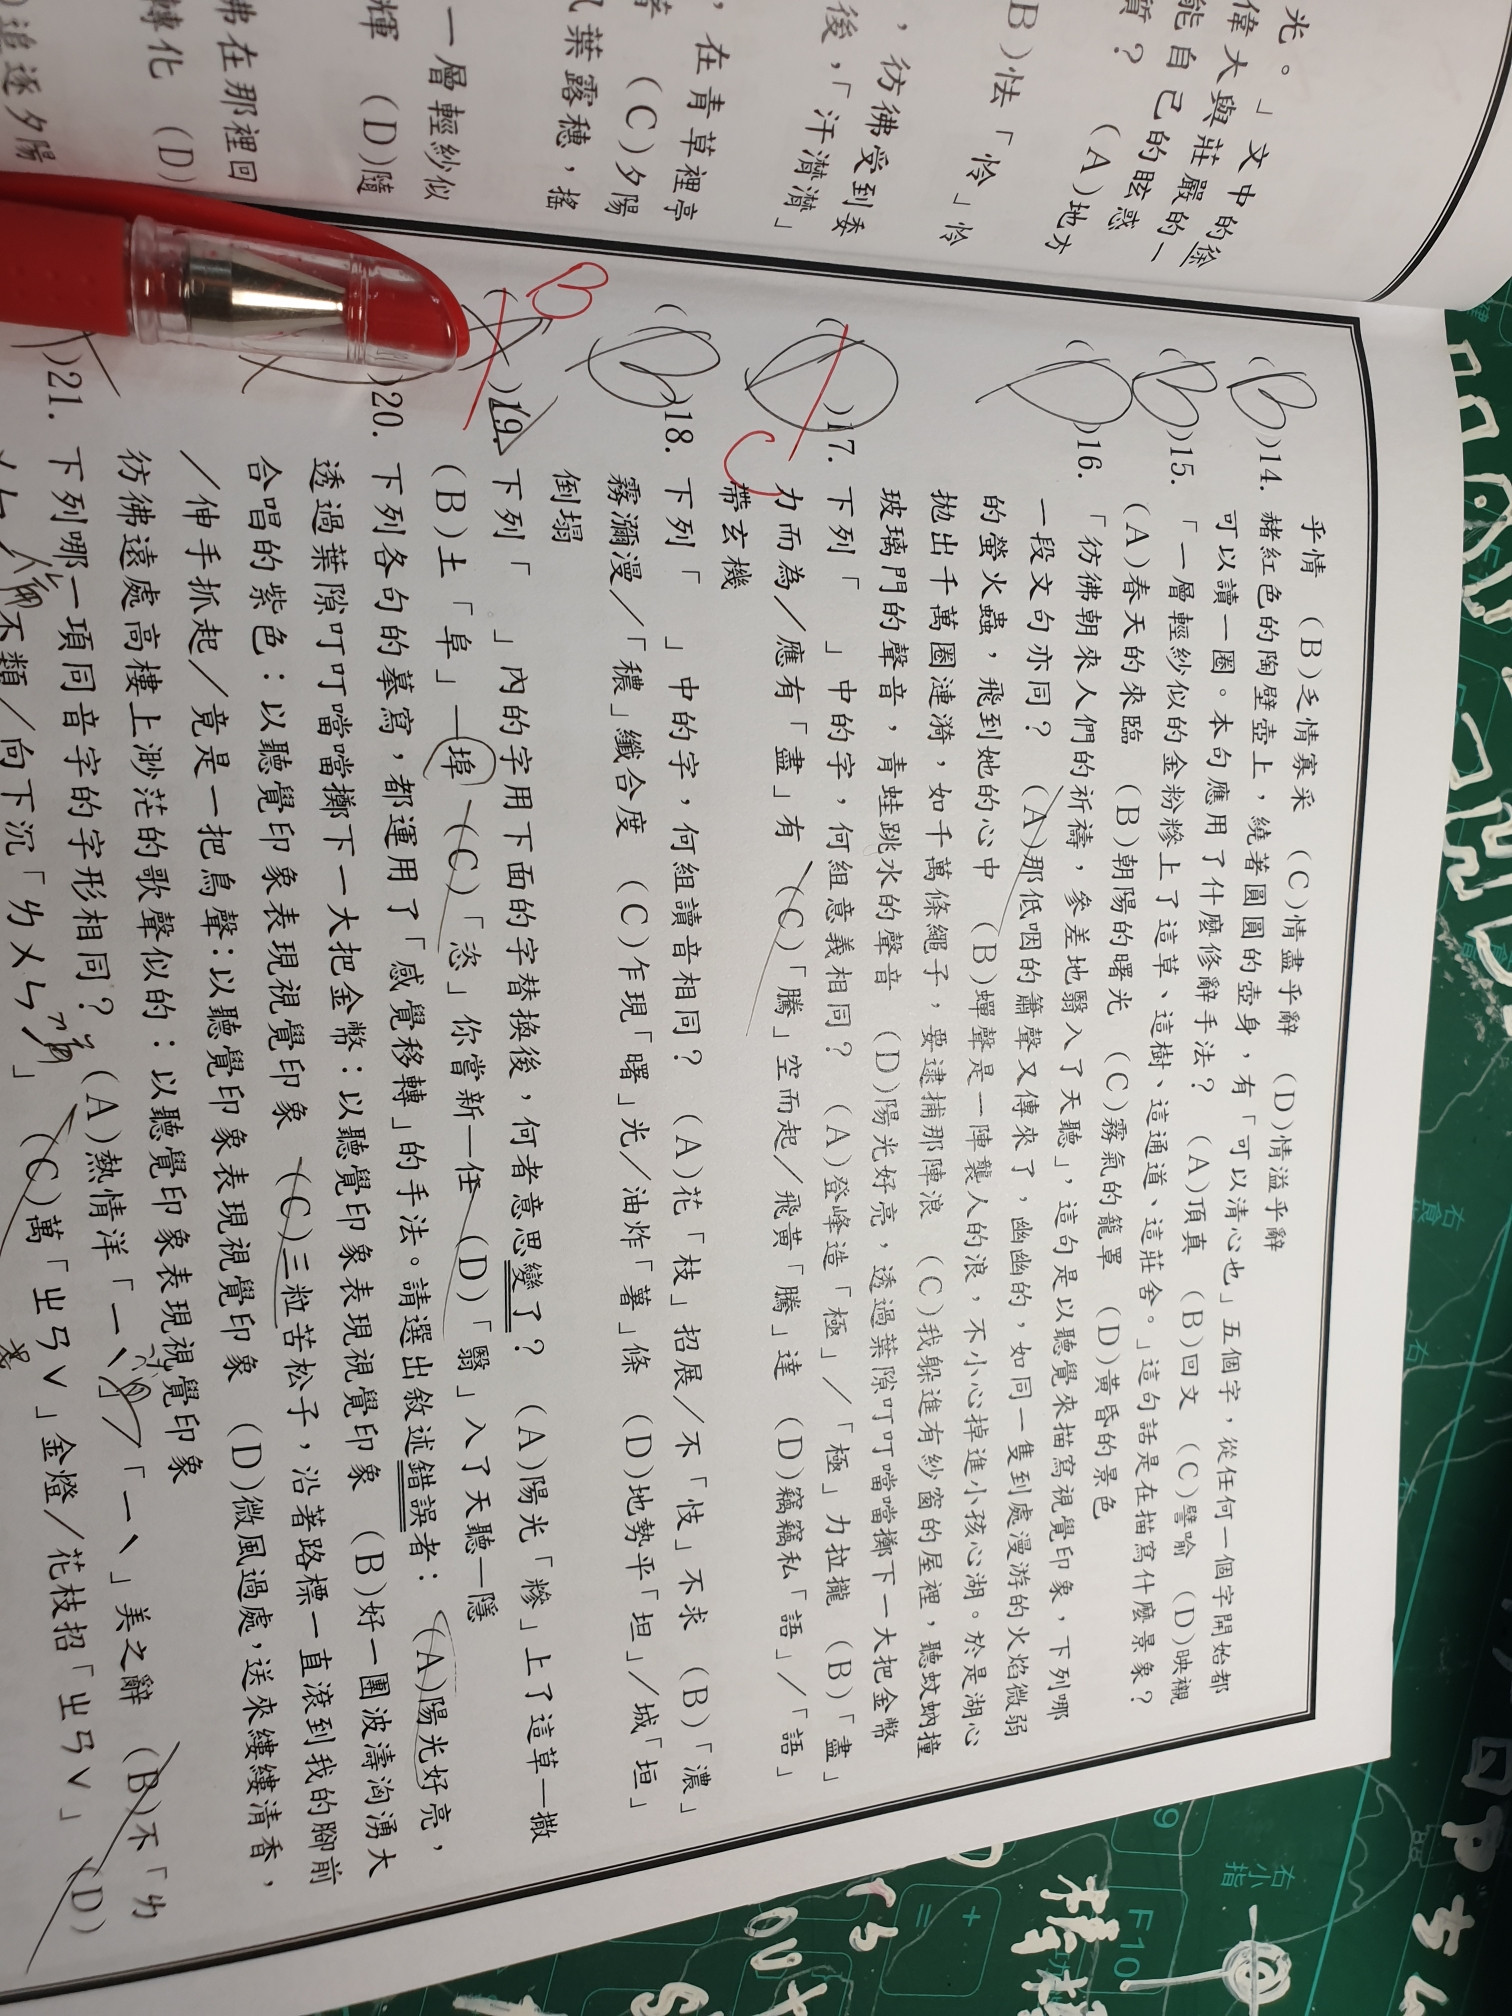 光。」文中的
偉大與莊嚴的一
能自己的眩惑
質？　(A)地方
B)怯「怜」怜
，彷彿受到委
後，「汗潸潸」
，在青草裡亭
(C)夕陽
葉露穗，搖
一層輕紗似
輝　(D)隨
弗在那裡回
轉化　(D)
追逐夕陽
乎情　(B)乏情寡采　(C)情盡乎辭　(D)情溢乎辭
(B)14. 赭紅色的陶壁壺上，繞著圓圓的壺身，有「可以清心也」五個字，從任何一個字開始都
可以讀一圈。本句應用了什麼修辭手法？　(A)頂真　(B)回文　(C)譬喻　(D)映襯
(B)15. 「一層輕紗似的金粉糝上了這草、這樹、這通道、這莊舍。」這句話是在描寫什麼景象？
(A)春天的來臨　(B)朝陽的曙光　(C)霧氣的籠罩　(D)黃昏的景色
(D)16. 「彷彿朝來人們的祈禱，參差地翳入了天聽」，這句是以聽覺來描寫視覺印象，下列哪
一段文句亦同？　(A)那低咽的簫聲又傳來了，幽幽的，如同一隻到處漫游的火焰微弱
的螢火蟲，飛到她的心中　(B)蟬聲是一陣襲人的浪，不小心掉進小孩心湖。於是湖心
拋出千萬圈漣漪，如千萬條繩子，要逮捕那陣浪　(C)我躲進有紗窗的屋裡，聽蚊蚋撞
玻璃門的聲音，青蛙跳水的聲音　(D)陽光好亮，透過葉隙叮叮噹噹擲下一大把金幣
(D)17. 下列「　　」中的字，何組意義相同？　(A)登峰造「極」／「極」力拉攏　(B)「盡」
C
力而為／應有「盡」有　(C)「騰」空而起／飛黃「騰」達　(D)竊竊私「語」／「語」
帶玄機
(B)18. 下列「　　」中的字，何組讀音相同？　(A)花「枝」招展／不「忮」不求　(B)「濃」
霧瀰漫／「穠」纖合度　(C)乍現「曙」光／油炸「薯」條　(D)地勢平「坦」／城「垣」
倒塌
B
)19. 下列「　　」內的字用下面的字替換後，何者意思變了？　(A)陽光「糝」上了這草—撒
(B)土「阜」—埠　(C)「恣」你嘗新—任　(D)「翳」入了天聽—隱
)20. 下列各句的摹寫，都運用了「感覺移轉」的手法。請選出敘述錯誤者：　(A)陽光好亮，
透過葉隙叮叮噹噹擲下一大把金幣：以聽覺印象表現視覺印象　(B)好一團波濤洶湧大
合唱的紫色：以聽覺印象表現視覺印象　(C)三粒苦松子，沿著路標一直滾到我的腳前
／伸手抓起／竟是一把鳥聲：以聽覺印象表現視覺印象　(D)微風過處，送來縷縷清香，
彷彿遠處高樓上渺茫的歌聲似的：以聽覺印象表現視覺印象
)21. 下列哪一項同音字的字形相同？　(A)熱情洋「ㄧˋ」／「ㄧˋ」美之辭　(B)不「ㄌ
ㄨㄣˊ」不類／向下沉「ㄌㄨㄣˊ」　(C)萬「ㄓㄢˇ」金燈／花枝招「ㄓㄢˇ」　(D)
F10
9
+
=
右小指